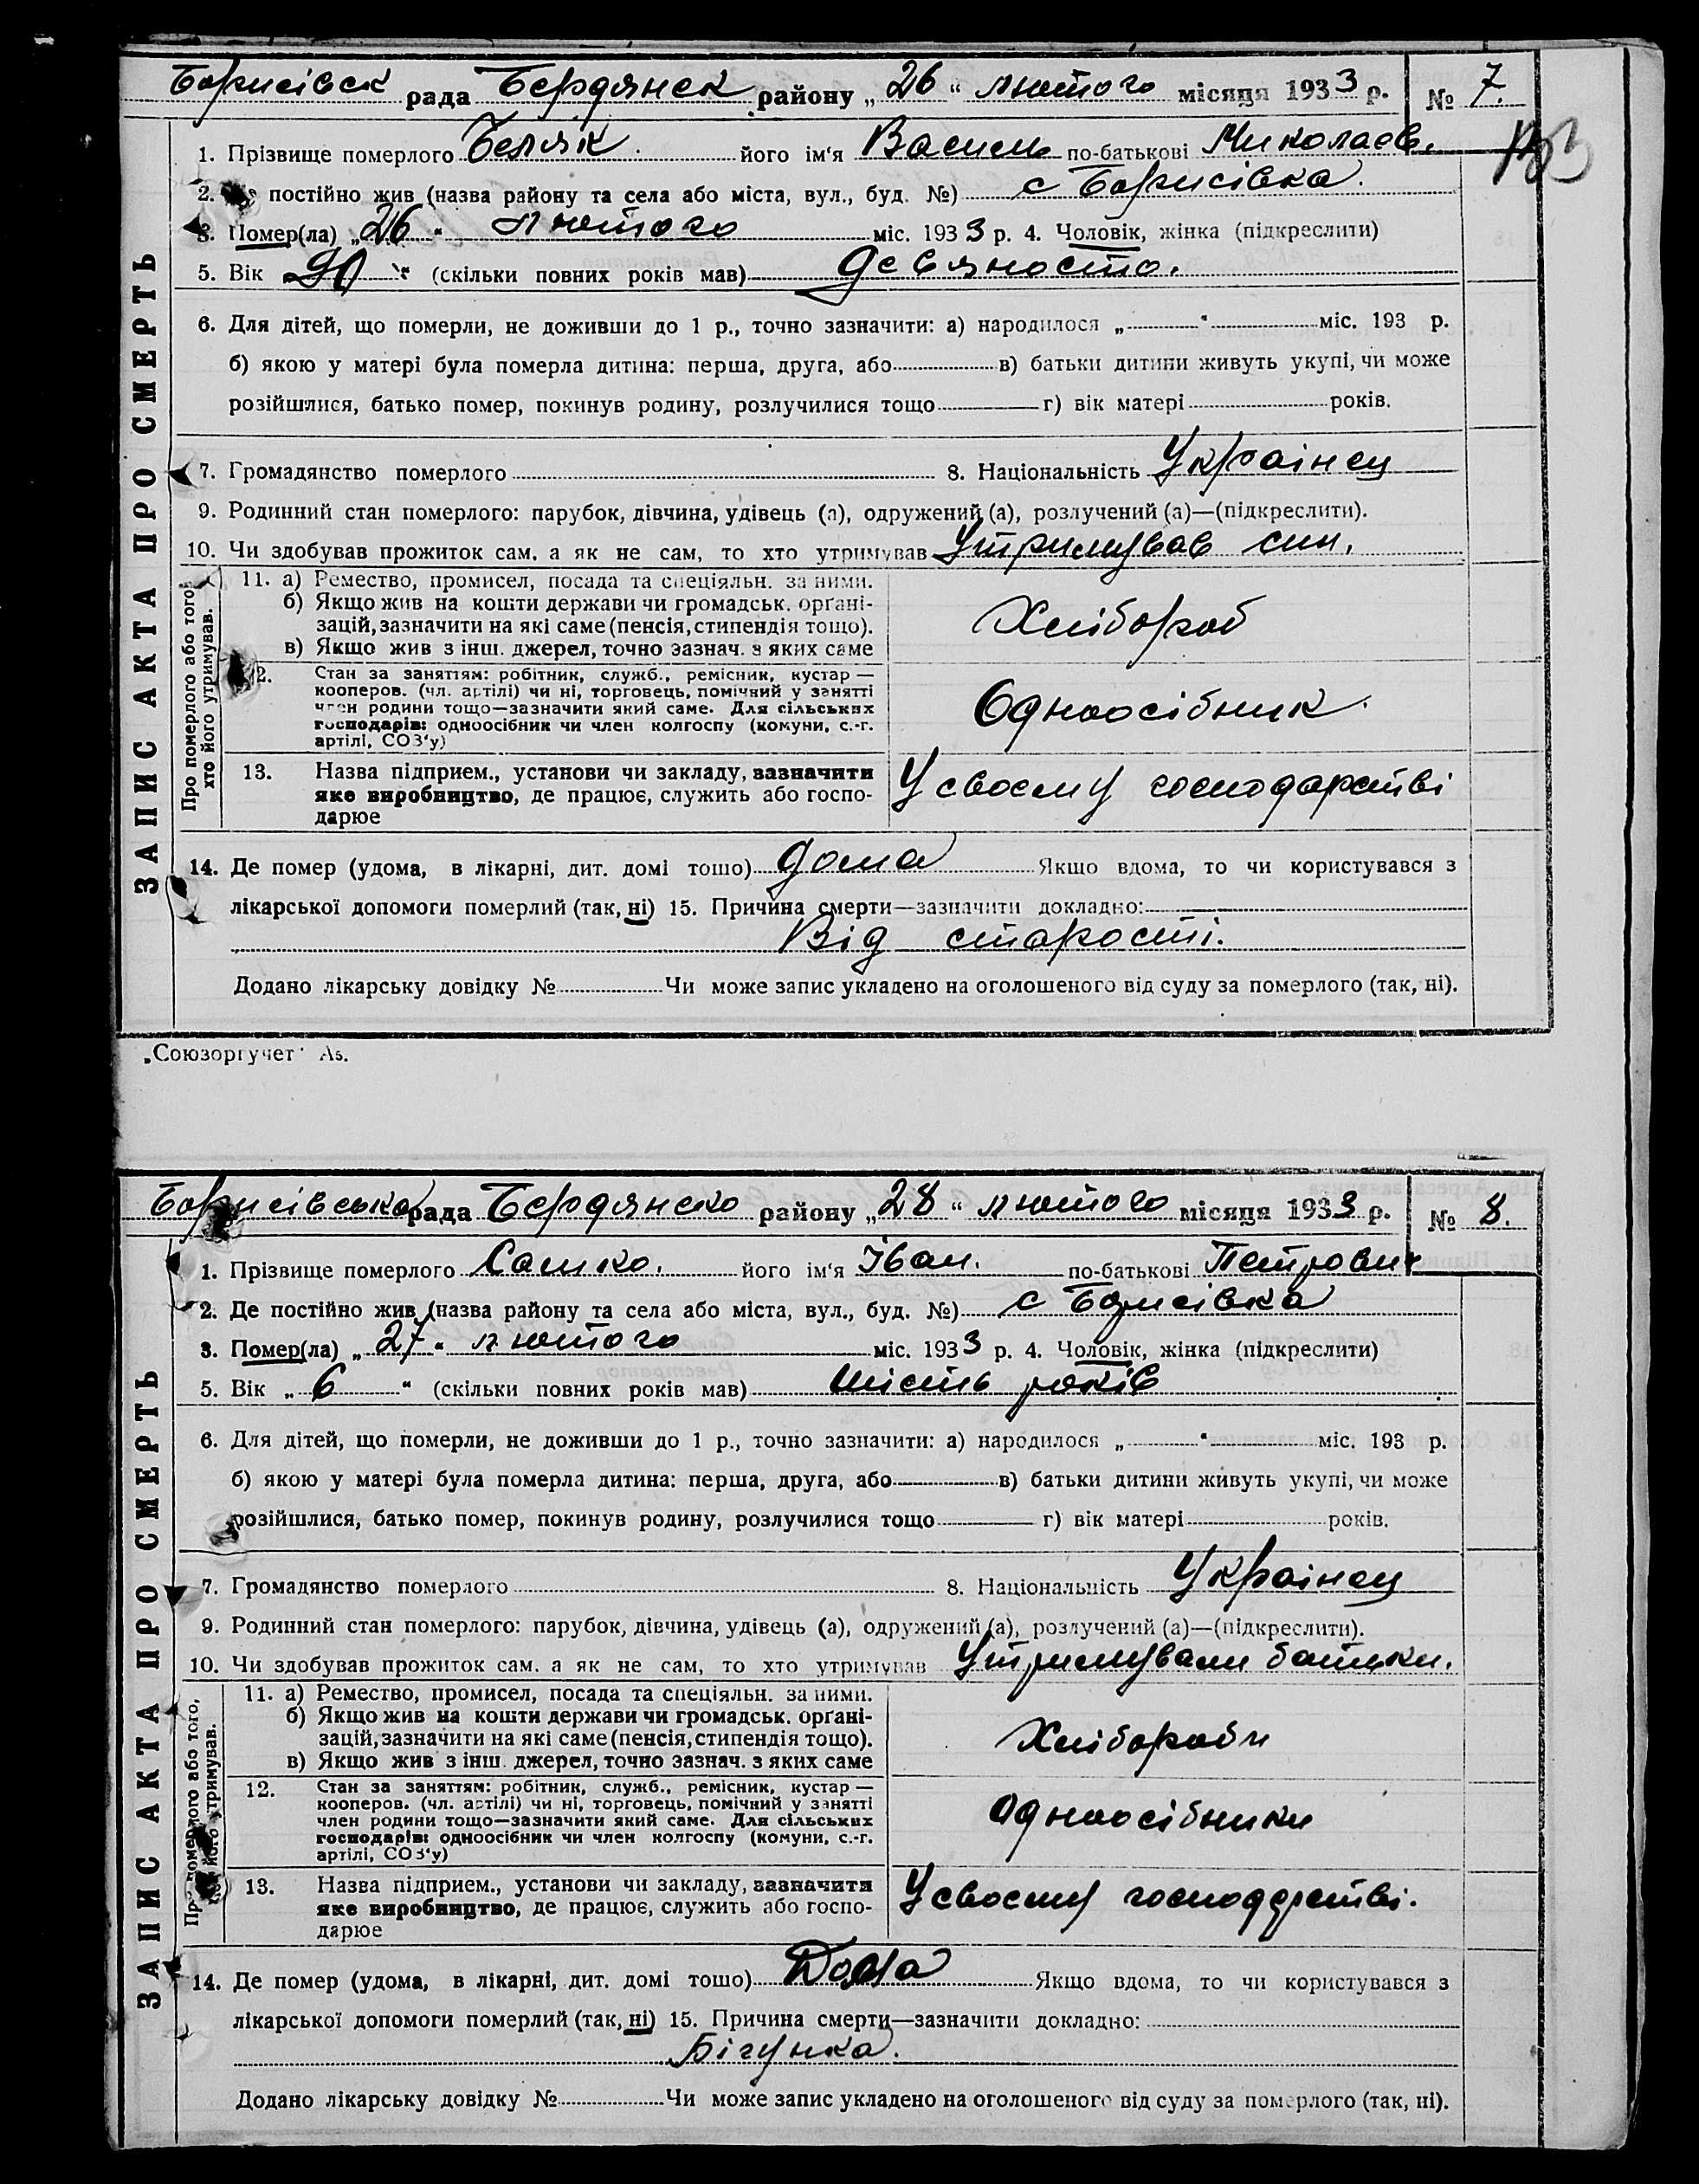 Борисівск рада Бердянск району „26“ лютого місяця 1933 р. № 7.
1. Прізвище померлого Беляк. його ім'я Василь по-батькові Миколаєв.
2. постійно жив (назва району та села або міста, вул., буд. №) с Борисівка.
3. Помер(ла) „26“ лютого міс. 1933 р. 4. Чоловік, жінка (підкреслити)
5. Вік 90 “ (скільки повних років мав) девяносто.
6. Для дітей, що померли, не доживши до 1 р., точно зазначити: а) народилося „ “ міс. 193 р.
б) якою у матері була померла дитина: перша, друга, або в) батьки дитини живуть укупі, чи може
розійшлися, батько помер, покинув родину, розлучилися тощо г) вік матері років.
7. Громадянство померлого 8. Національність Українец
9. Родинний стан померлого: парубок, дівчина, удівець (а), одружений (а), розлучений (а)—(підкреслити).
10. Чи здобував прожиток сам, а як не сам, то хто утримував Утримував син.
Про померлого або того, хто його утримував.
11. а) Ремество, промисел, посада та спеціяльн. за ними.
б) Якщо жив на кошти держави чи громадськ. орґані-
зацій, зазначити на які саме (пенсія, стипендія тощо).
в) Якщо жив з інш. джерел, точно зазнач. з яких саме
Хлібороб
12. Стан за заняттям: робітник, служб., ремісник, кустар —
кооперов. (чл. артілі) чи ні, торговець, помічний у занятті
член родини тощо—зазначити який саме. Для сільських
господарів: одноосібник чи член колгоспу (комуни, с.-г.
артілі, СОЗ'у)
Одноосібник.
13. Назва підприєм., установи чи закладу, зазначити
яке виробництво, де працює, служить або госпо-
дарює
У своєму господарстві
14. Де помер (удома, в лікарні, дит. домі тощо) дома Якщо вдома, то чи користувався з
лікарської допомоги померлий (так, ні) 15. Причина смерти—зазначити докладно:
Від старости.
Додано лікарську довідку № Чи може запис укладено на оголошеного від суду за померлого (так, ні).
ЗАПИС АКТА ПРО СМЕРТЬ
„Союзоргучет“ Аз.
Борисівсько рада Бердянско району „28“ лютого місяця 1933 р. № 8.
1. Прізвище померлого Сашко. його ім'я Іван. по-батькові Петрович
2. Де постійно жив (назва району та села або міста, вул., буд. №) с Борисівка
3. Помер(ла) „27“ лютого міс. 1933 р. 4. Чоловік, жінка (підкреслити)
5. Вік „6“ (скільки повних років мав) шість років
6. Для дітей, що померли, не доживши до 1 р., точно зазначити: а) народилося „ “ міс. 193 р.
б) якою у матері була померла дитина: перша, друга, або в) батьки дитини живуть укупі, чи може
розійшлися, батько помер, покинув родину, розлучилися тощо г) вік матері років.
7. Громадянство померлого 8. Національність Українец
9. Родинний стан померлого: парубок, дівчина, удівець (а), одружений (а), розлучений (а)—(підкреслити).
10. Чи здобував прожиток сам, а як не сам, то хто утримував Утримували батьки.
Про померлого або того, хто його утримував.
11. а) Ремество, промисел, посада та спеціяльн. за ними.
б) Якщо жив на кошти держави чи громадськ. орґані-
зацій, зазначити на які саме (пенсія, стипендія тощо).
в) Якщо жив з інш. джерел, точно зазнач. з яких саме
Хлібороби
12. Стан за заняттям: робітник, служб., ремісник, кустар —
кооперов. (чл. артілі) чи ні, торговець, помічний у занятті
член родини тощо—зазначити який саме. Для сільських
господарів: одноосібник чи член колгоспу (комуни, с.-г.
артілі, СОЗ'у)
Одноосібники
13. Назва підприєм., установи чи закладу, зазначити
яке виробництво, де працює, служить або госпо-
дарює
У своєму господрстві.
14. Де помер (удома, в лікарні, дит. домі тощо) Дома Якщо вдома, то чи користувався з
лікарської допомоги померлий (так, ні) 15. Причина смерти—зазначити докладно:
Бігунка.
Додано лікарську довідку № Чи може запис укладено на оголошеного від суду за померлого (так, ні).
ЗАПИС АКТА ПРО СМЕРТЬ